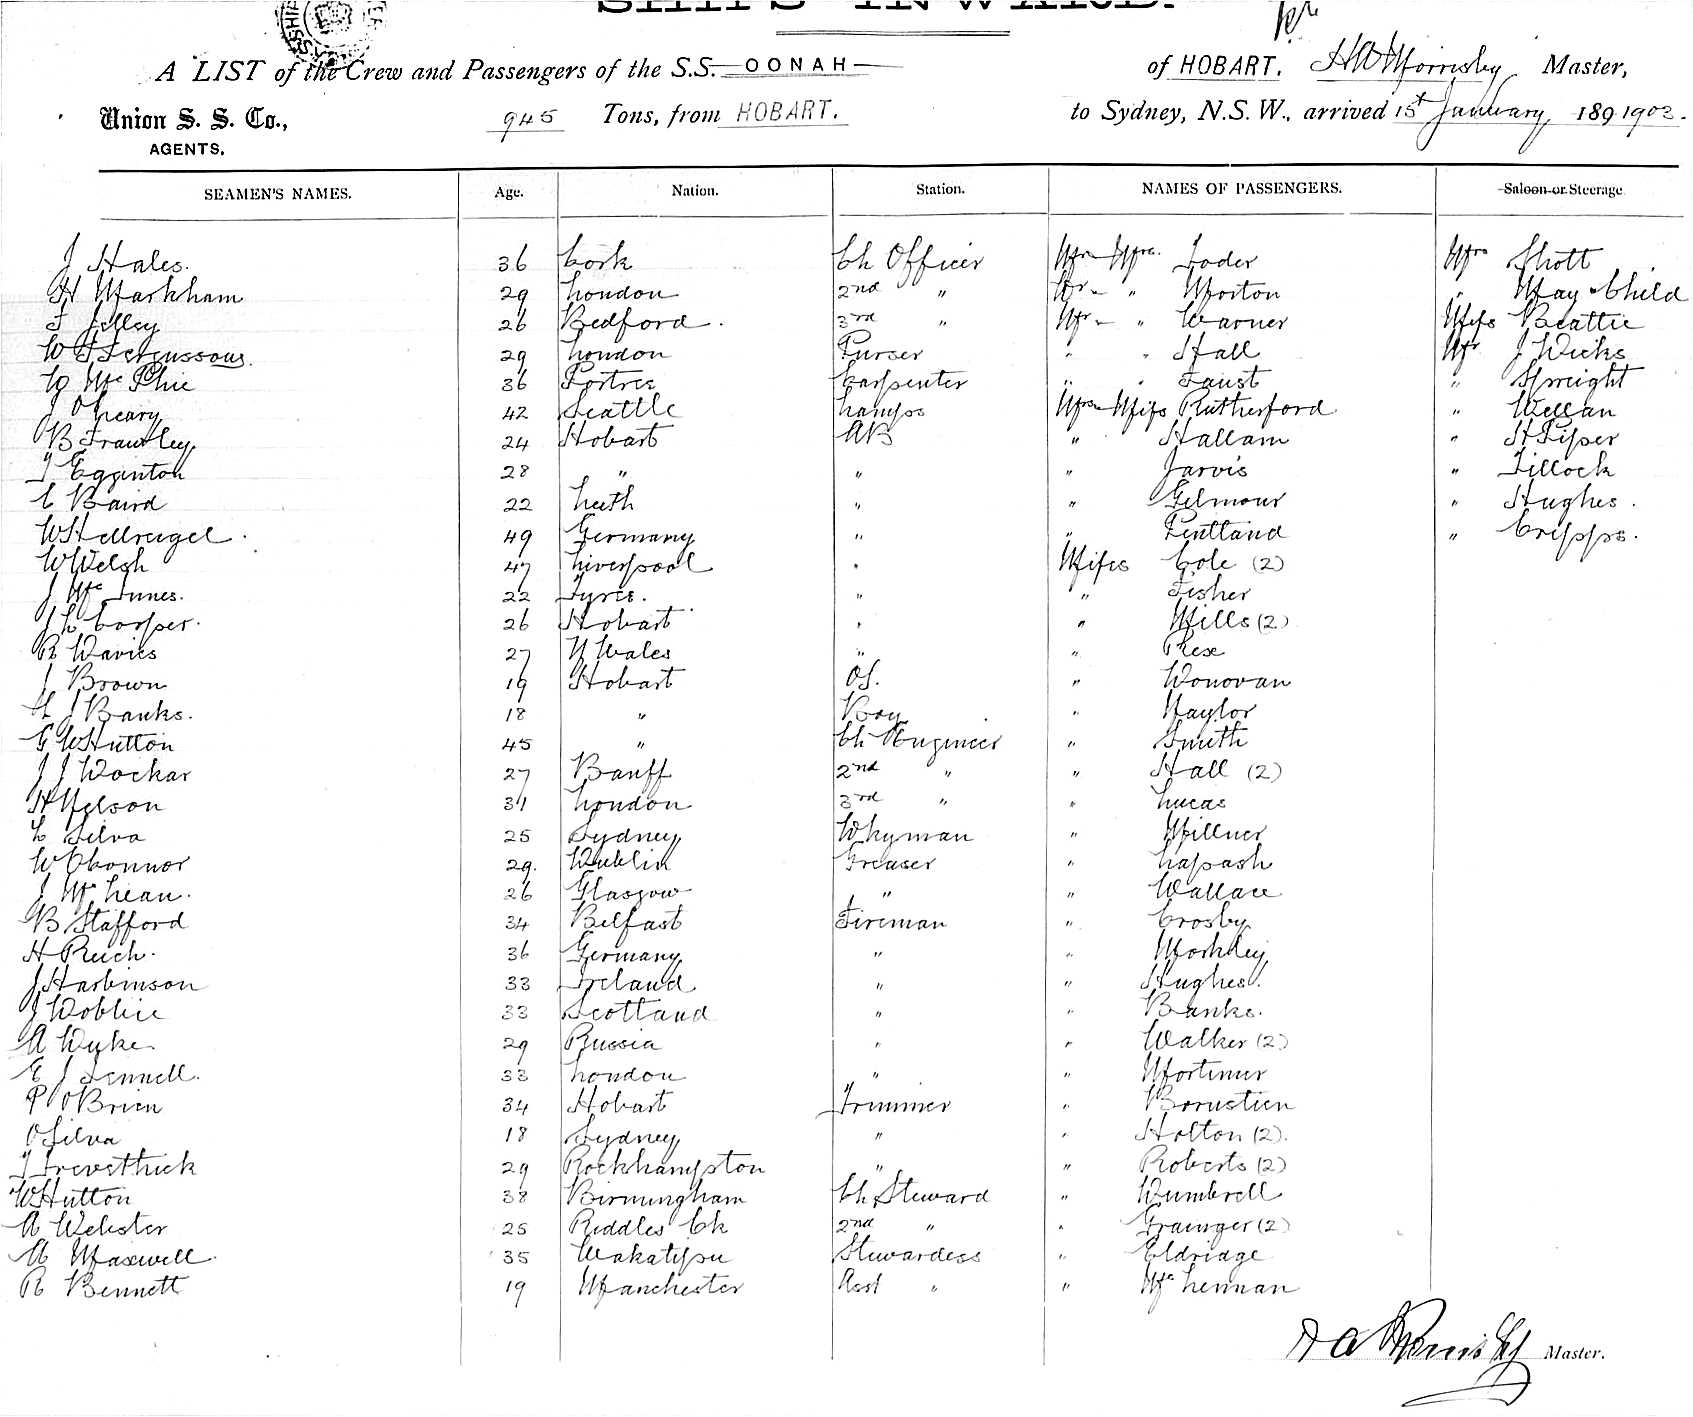 SHIPS INWARD.
A LIST of the Crew and Passengers of the S.S. OONAH of HOBART, Master,
Union S. S. Co., 945 Tons, from HOBART. to Sydney, N.S.W., arrived 15th January 189 1903.
AGENTS.
SEAMEN'S NAMES. Age. Nation. Station. NAMES OF PASSENGERS. Saloon or Steerage
J Hales. 36 Cork Ch Officer Mr & Mrs. Loder Mrs Shott
H Markham 29 London 2nd " Mr & " Morton " May & Child
F Jilley 26 Bedford. 3rd " Mr & " Warner Miss Beattie
W F Fergusson 29 London Purser " " Hall Mr J Wicks
W McPhie 36 Portree Carpenter " " Faust " Speight
J O'Leary 42 Seattle Lamps Mr & Miss Rutherford " Wellan
B Frawley 24 Hobart AB " Hallam " H Piper
T Egginton 28 " " " Jarvis " Tillock
C Baird 22 Leith " " Gilmour " Hughes.
W Hellreigel. 49 Germany " " Pentland " Cripps.
W Welsh 47 Liverpool " Misses Cole (2)
J McInnes. 22 Tyree. " " Fisher
J L Cooper. 26 Hobart " " Mills (2)
R Davies 27 N Wales " " Rex
J Brown 19 Hobart OS. " Donovan
H J Banks. 18 " Boy " Naylor
G W Hutton 45 " Ch Engineer " Smith
J J Dockar 27 Banff 2nd " " Hall (2)
H Nelson 31 London 3rd " " Lucas
L Silva 25 Sydney Dkyman " Millner
W O'Connor 29. Dublin Greaser " Lapash
J McLean. 26 Glasgow " " Wallace
B Stafford 34 Belfast Fireman " Crosby
H Reich. 36 Germany " "
J Harbinson 33 Ireland " " Hughes.
J Doblie 33 Scotland " " Banks.
A Dyke. 29 Russia " " Walker (2)
E J Fennell. 33 London " " Mortimer
P O'Brien 34 Hobart Trimmer " Bornstien
O Silva 18 Sydney " " Holton (2).
T Trevethick 29 Rockhampton " " Roberts (2)
W Hutton 38 Birmingham Ch Steward " Dumbrell
A Webster 25 Riddles Ck 2nd " " Grainger (2)
A Maxwell. 35 Wakatipu Stewardess " Eldridge
R Bennett 19 Manchester Asst " " McLennan
Master.